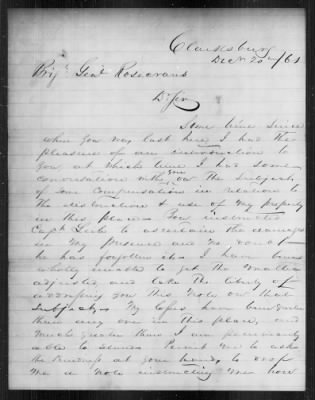 Clarksburg
Decr 20th /61
Brig. Genl Rosecrans
D. Sir
Some time since
when you was last here I had the
pleasure of an introduction to
you at which time I had some
conversation with you on the subject
of some compensation in relation
to the distruction & use of my property
in this place. You instructed
Capt Leib to ascertain the damages
in my presence and no doubt
he has forgotten it. I have been
wholly unable to get the matter
adjusted and take the liberty of
addressing you this note on that
subject. My losses have been greater
than any one in this place, and
much greater than I am
able to Permit me to ask
the kindness at your hands to drop
me a note instructing me how